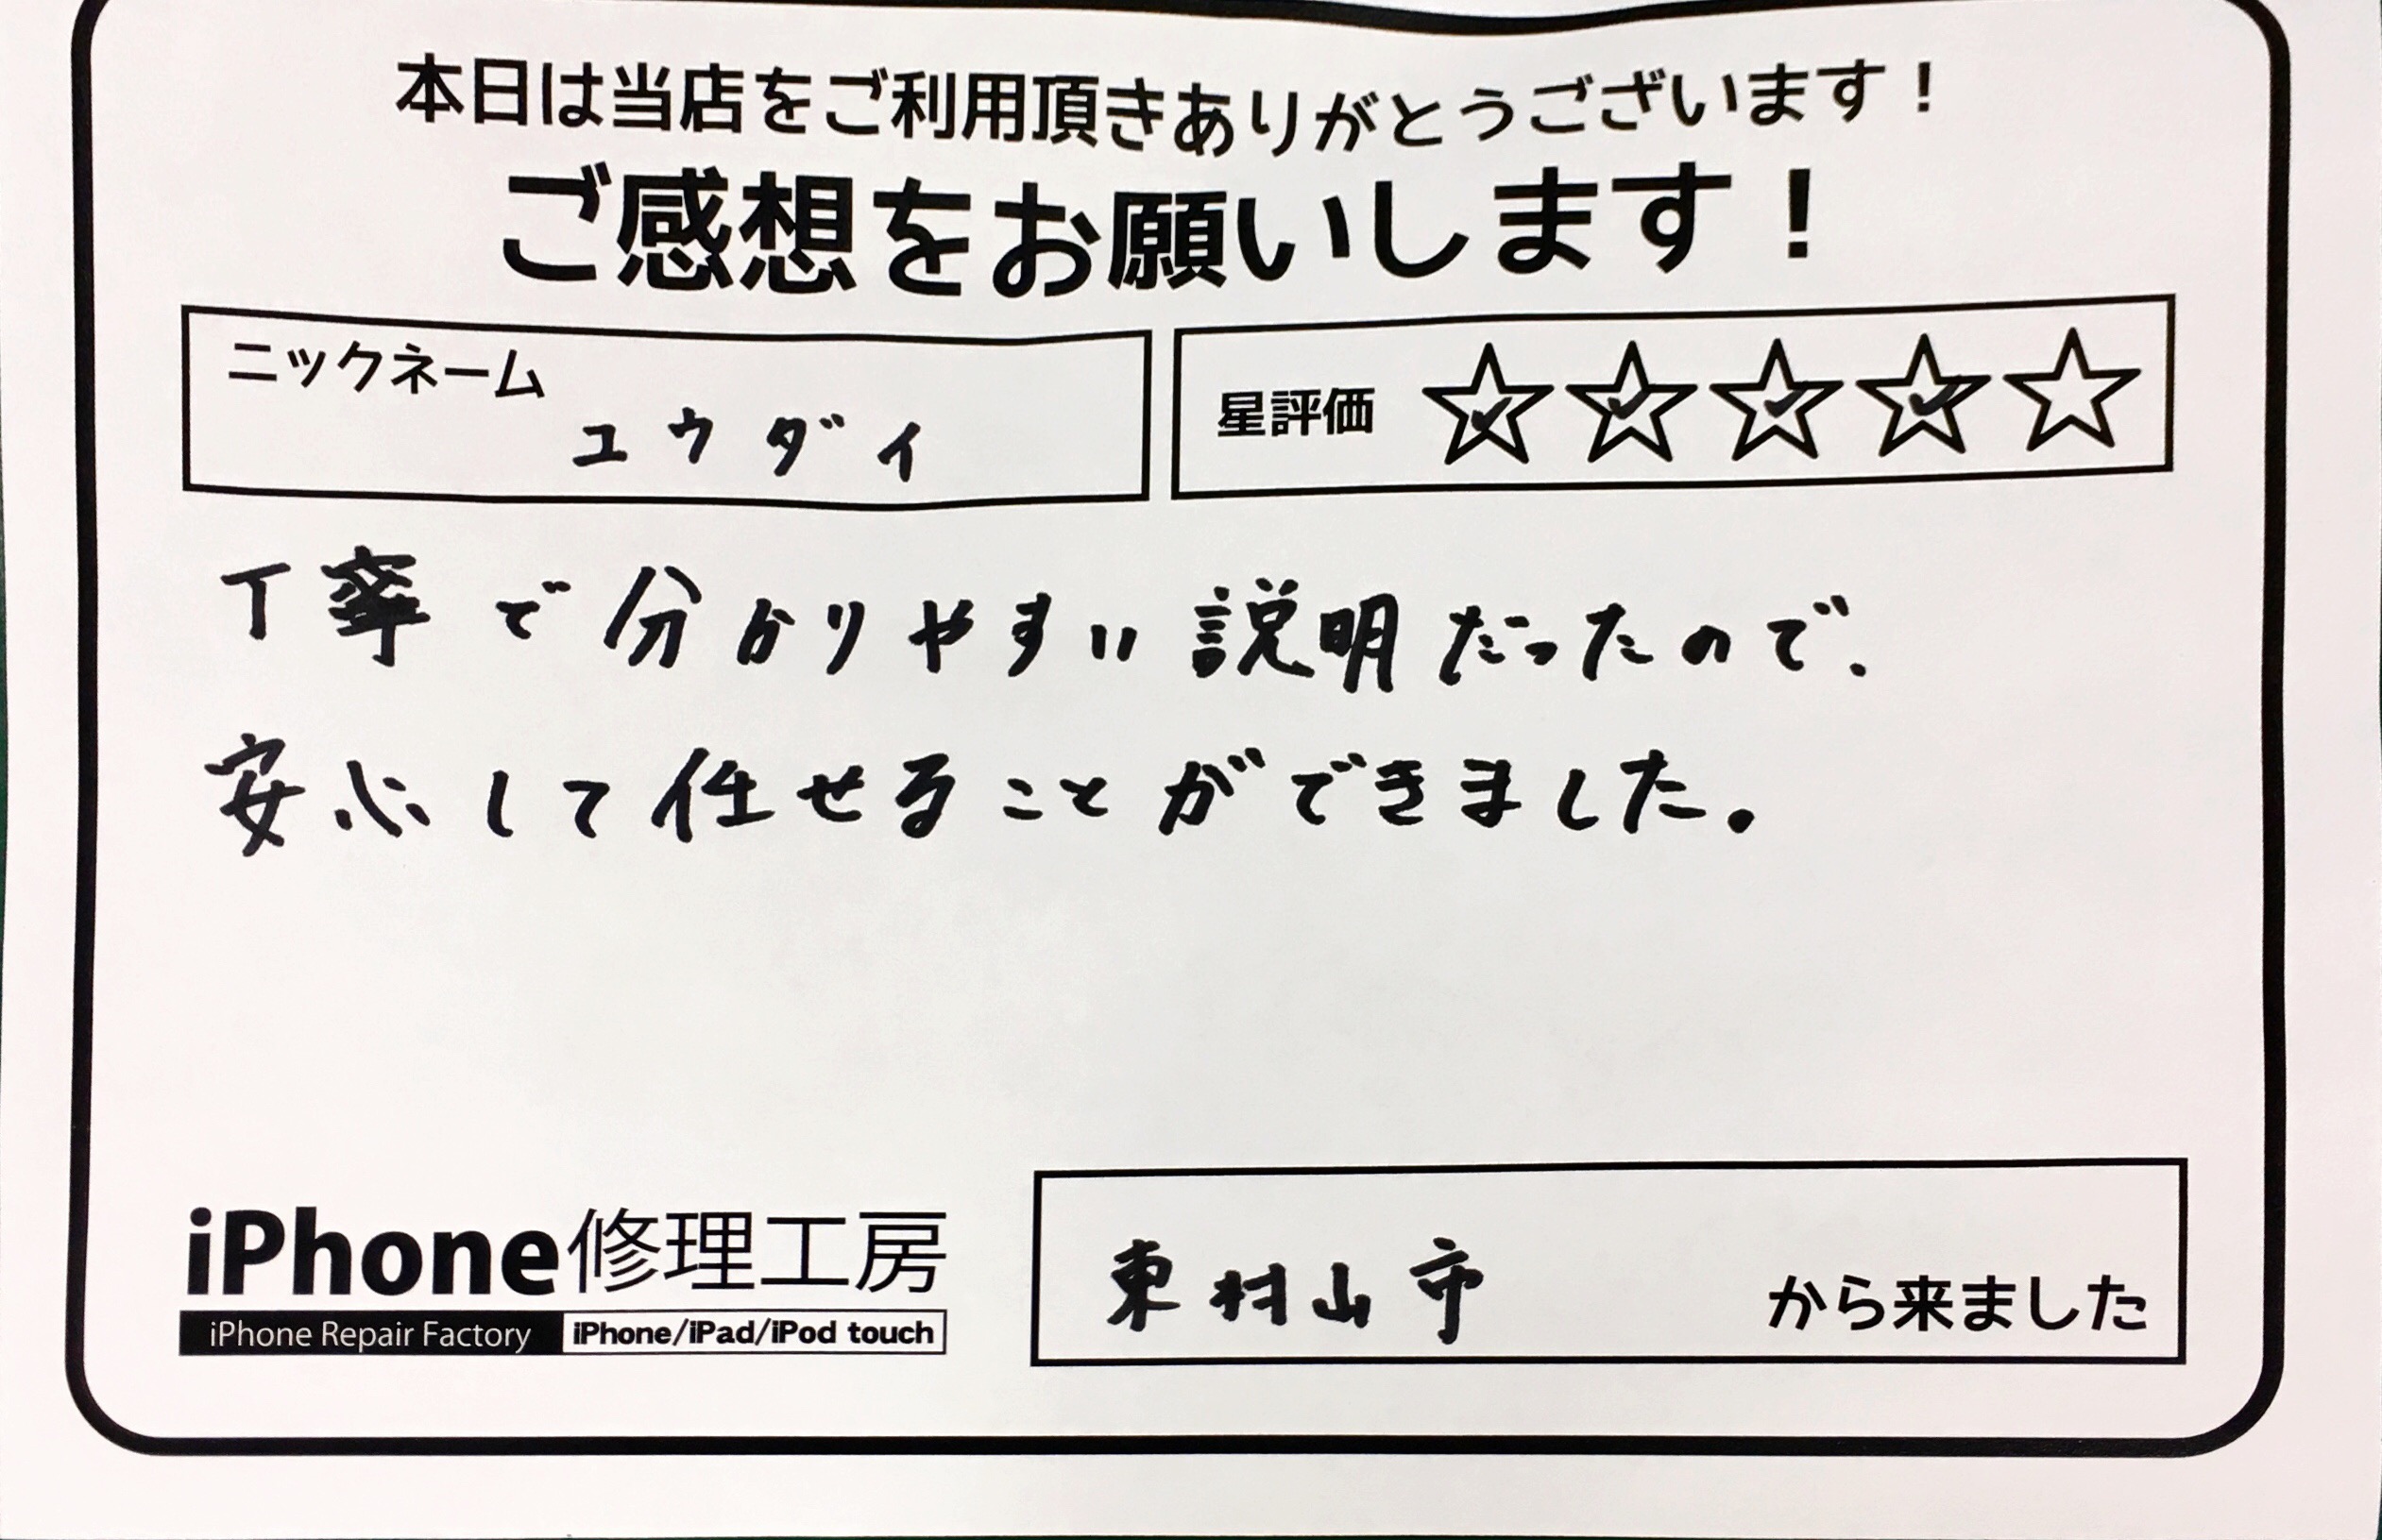 本日は当店をご利用頂きありがとうございます！
ご感想をお願いします！
ニックネーム
ユウダイ
星評価
丁寧で分かりやすい説明だったので、
安心して任せることができました。
iPhone修理工房
iPhone Repair Factory iPhone/iPad/iPod touch
東村山市 から来ました